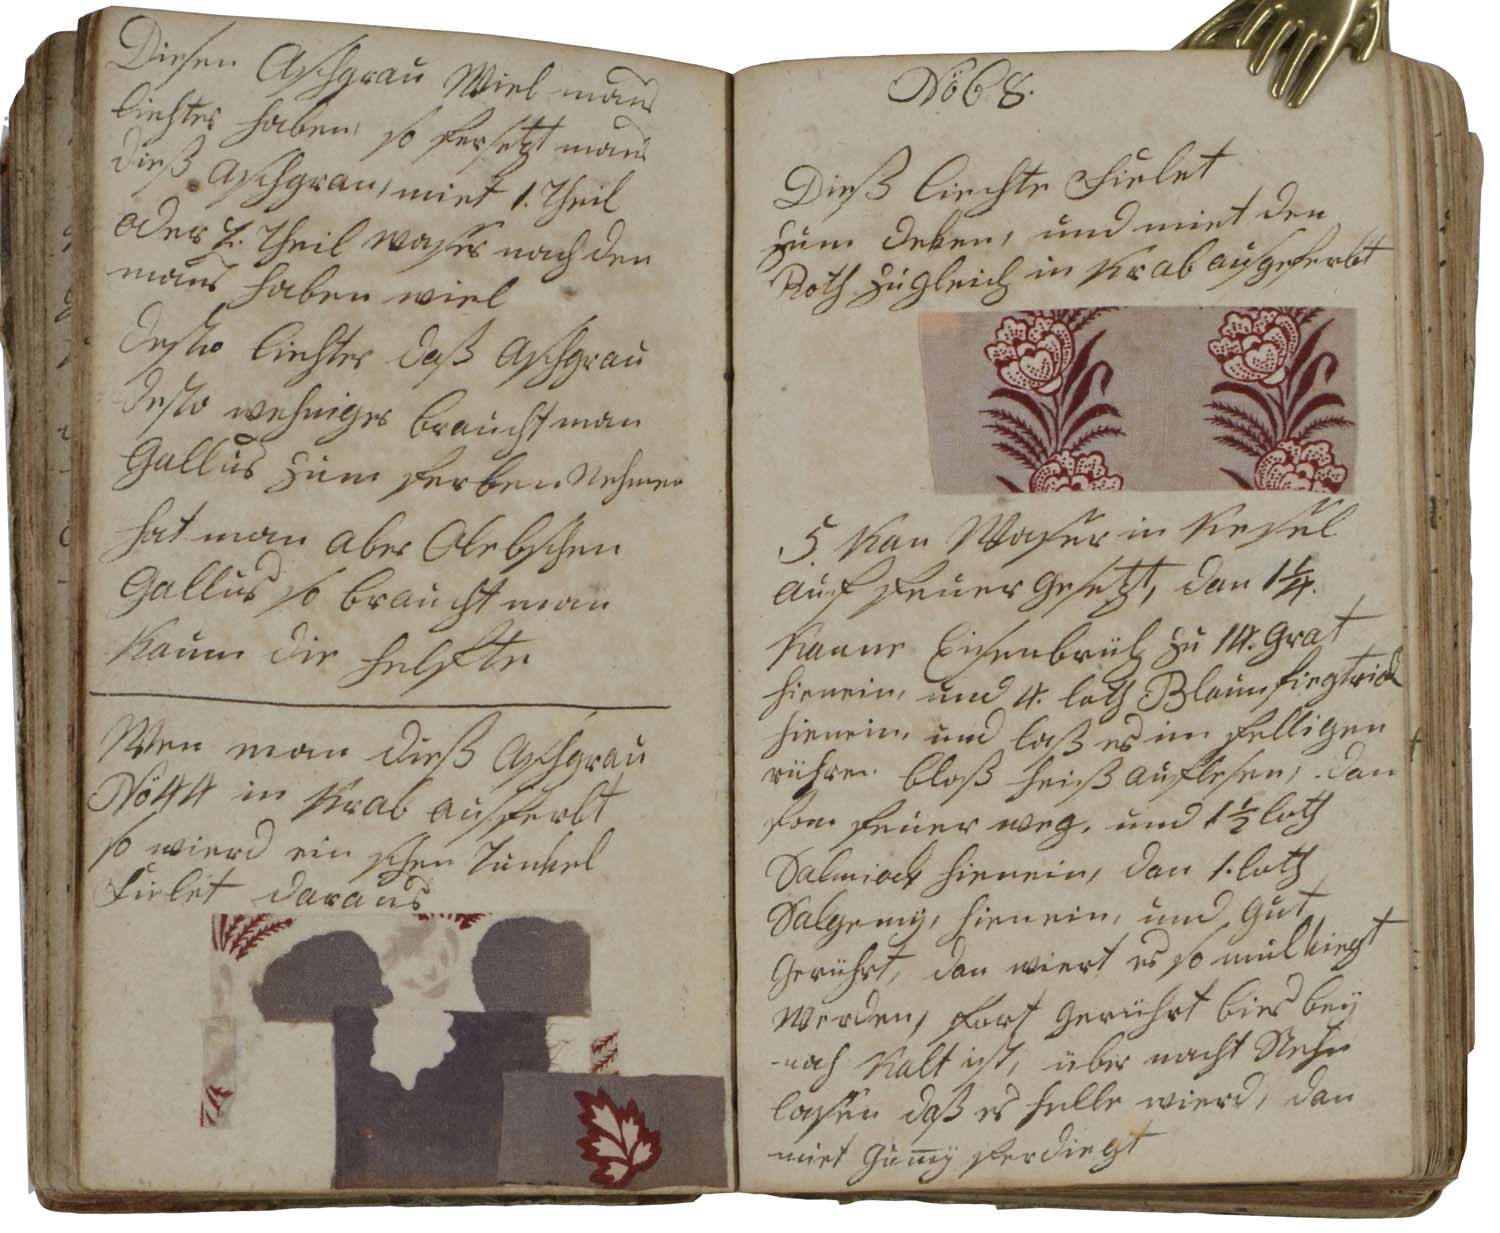 Diesen Aschgrau Wiel mans
liechter haben, so fersetzt mans
dieß Aschgrau, miet 1. Theil
oder 2. Theil waser nach den
mans haben wiel
desto liechter daß Aschgrau
desto wehniger braucht man
Gallus zum ferben Nehmen
hat man aber Alebschen
Gallus so braucht man
Kaum die helfte
Wen man dieß Aschgrau
No 44 in Krab ausferbt
so wierd ein schen Tunkel
Fielet daraus
No 68.
Dieß liechte Fielet
zum deken, und miet den
Roth zugleich in Krab ausgeferbt
5. Kan Waser in Kesel
auf feuer gesetzt, dan 1 1/4.
Kanne Eisenbrüh zu 14. Grat
hienein, und 4. loth Blaum fiegtriol
hienein, und laß es im felligen
rühren bloß heiß auflesen, dan
fom feuer weg, und 1 1/2 loth
Salmiack hienein, dan 1. loth
Salgemy, hienein, und gut
gerührt, dan wiert es so mulkiegt
werden, fort gerührt bies bey
nah Kalt ist, über nacht Stehn
lasen daß es helle wierd, dan
miet Gumy ferdiegt